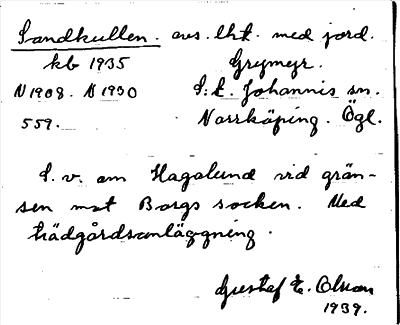 Sandkullen. avs. lht. med jord.
kb 1935 Grymyr.
N 1908. A 1930 S:t. Johannis sn.
559. Norrköping. Ögl.
S. v. om Hagalund vid grän-
sen mot Borgs socken. Med
trädgårdsanläggning.
Gustaf E. Olson
1939.